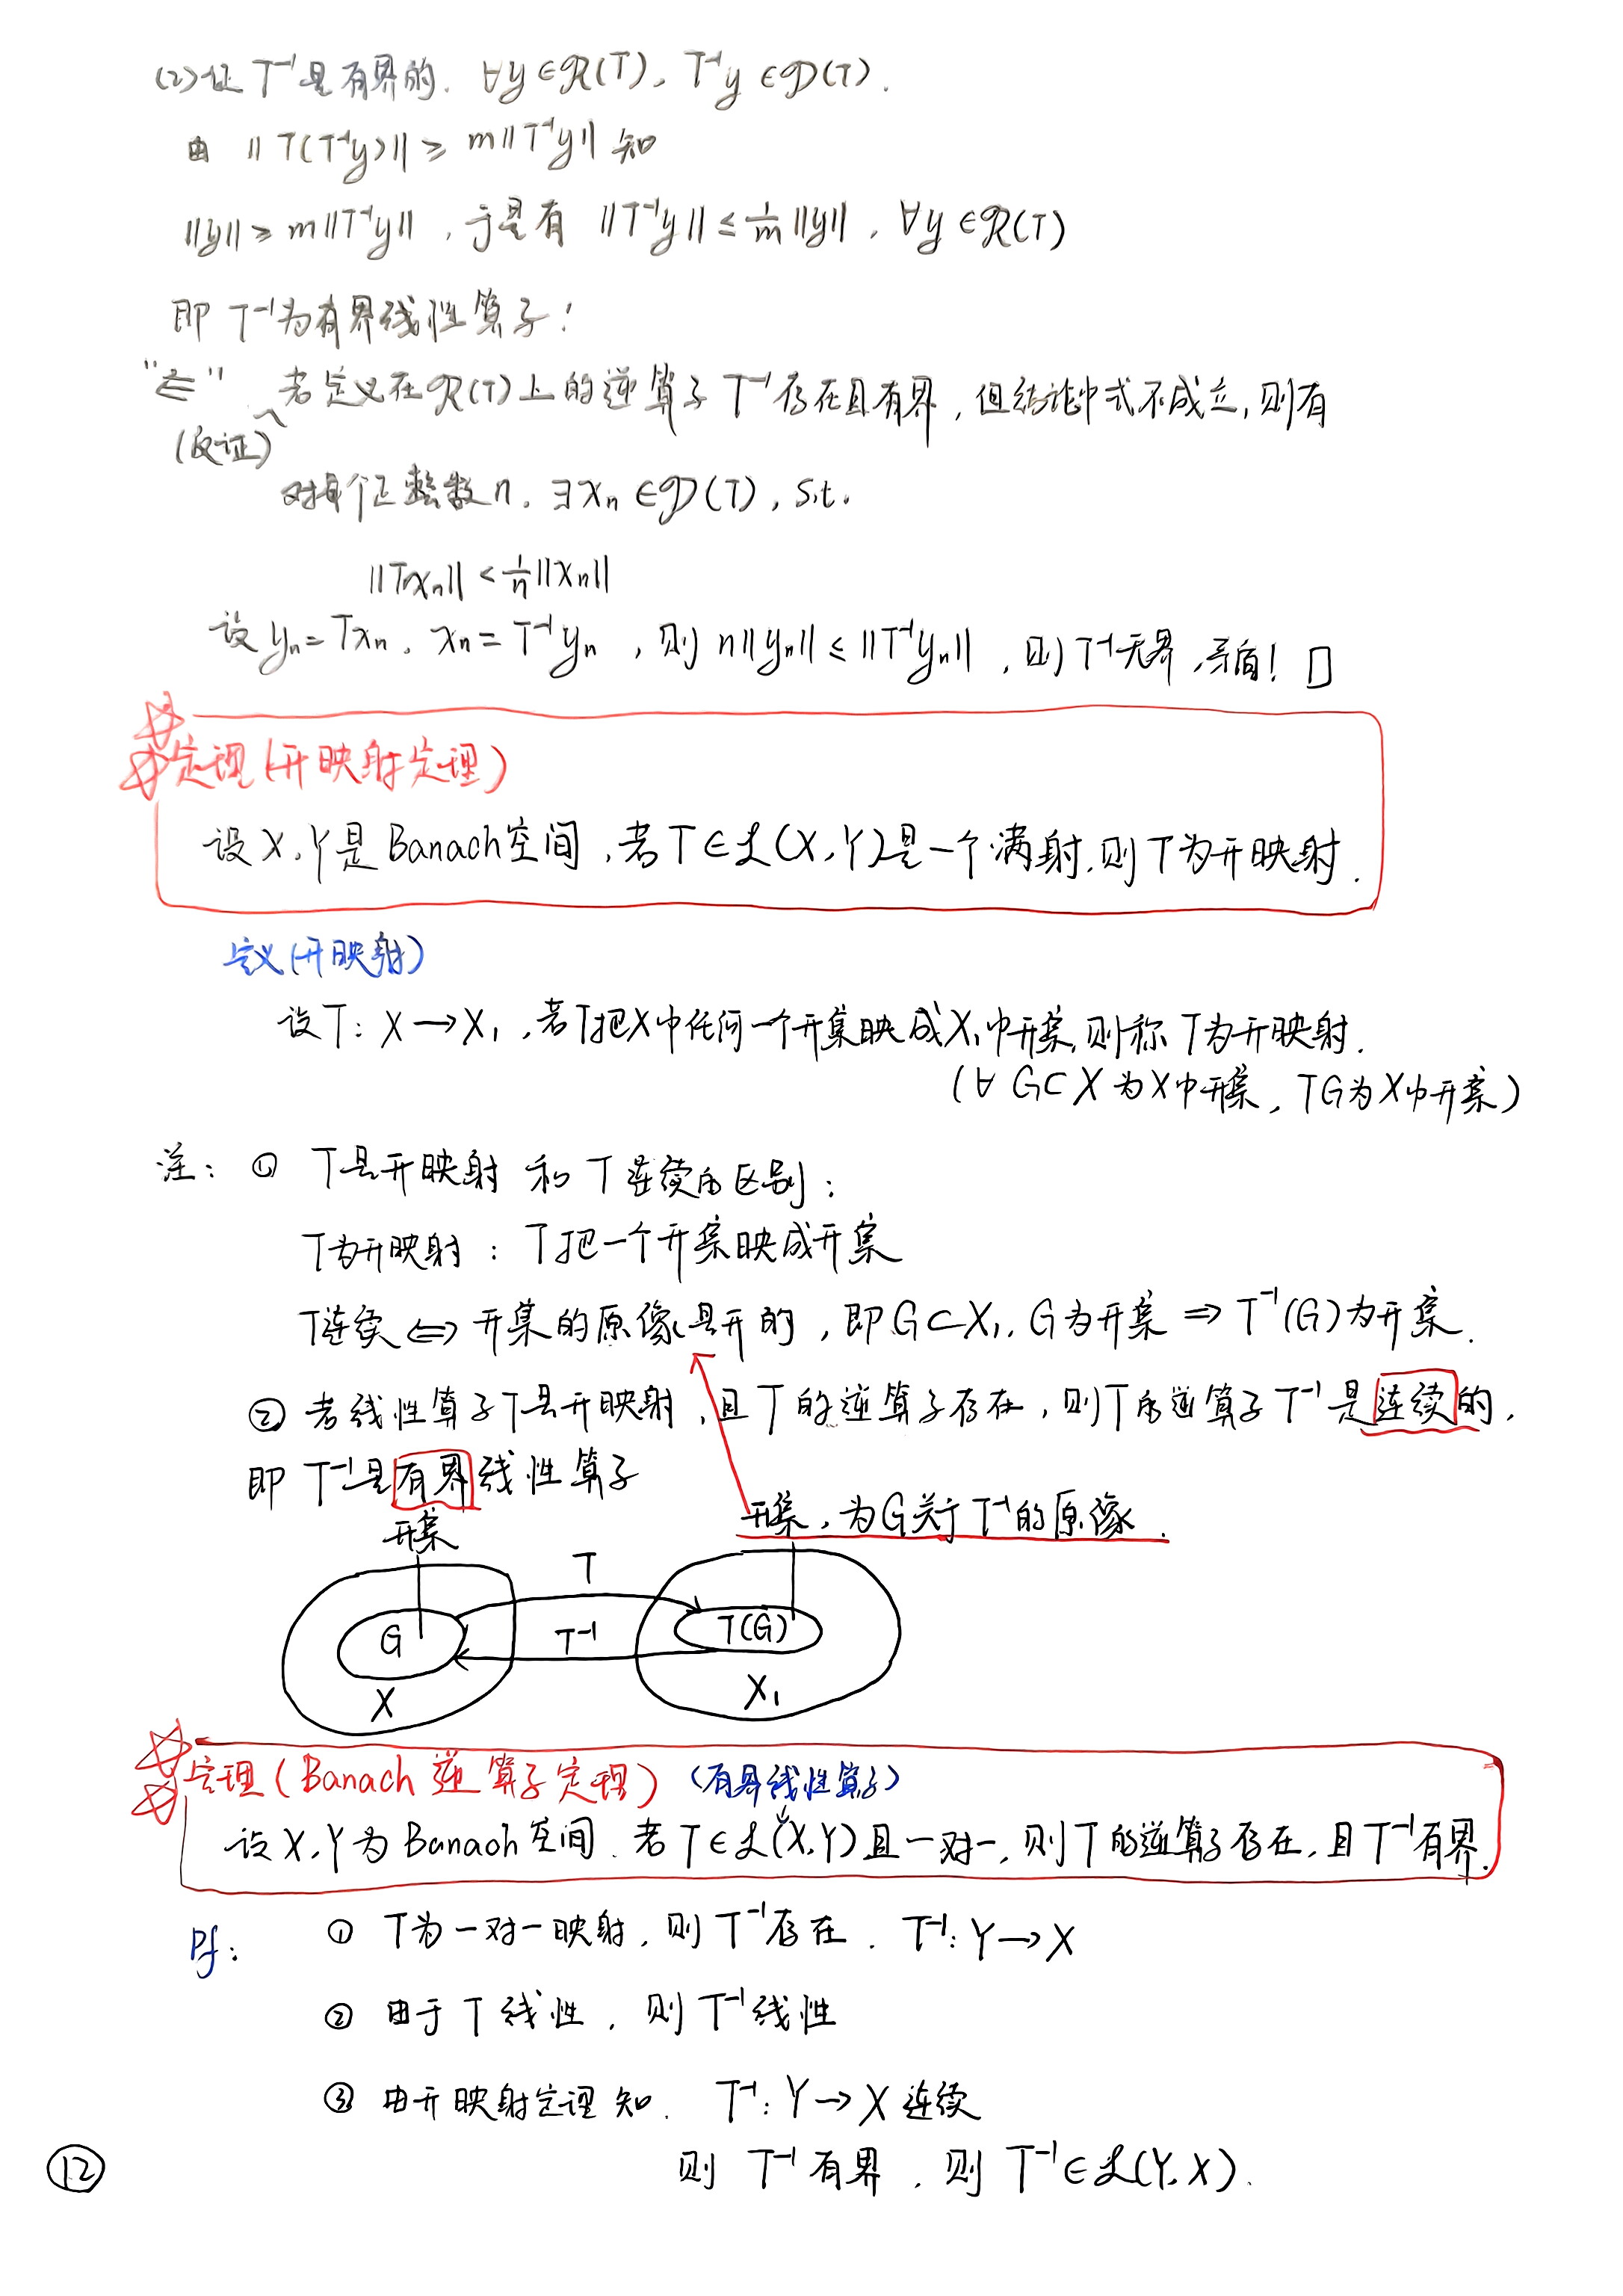 (2) 证 T⁻¹是有界的. ∀y∈𝓡(T), T⁻¹y∈𝓓(T).
由 ||T(T⁻¹y)|| ≥ m||T⁻¹y|| 知
||y|| ≥ m||T⁻¹y||, 于是有 ||T⁻¹y|| ≤ 1/m ||y||, ∀y∈𝓡(T)
即 T⁻¹为有界线性算子!
"⇐" 若定义在𝓡(T)上的逆算子 T⁻¹存在且有界, 但结论中式不成立, 则有
(反证)
对每个正整数n, ∃xₙ∈𝓓(T), s.t.
||Txₙ|| < 1/n ||xₙ||
设 yₙ=Txₙ, xₙ=T⁻¹yₙ, 则 n||yₙ|| ≤ ||T⁻¹yₙ||, 则T⁻¹无界, 矛盾! □
定理(开映射定理)
设X,Y是Banach空间, 若T∈𝓛(X,Y)是一个满射, 则T为开映射.
定义(开映射)
设T: X→X₁, 若T把X中任何一个开集映成X₁中开集, 则称T为开映射.
(∀ G⊂X 为X中开集, TG为X中开集)
注: ① T是开映射 和 T连续的区别:
T为开映射: T把一个开集映成开集
T连续 ⇔ 开集的原像是开的, 即G⊂X₁, G为开集 ⇒ T⁻¹(G)为开集.
② 若线性算子T是开映射, 且T的逆算子存在, 则T的逆算子T⁻¹是连续的,
即 T⁻¹是有界线性算子
开集
开集, 为G关于T⁻¹的原像.
T
G
T⁻¹
T(G)
X
X₁
定理(Banach 逆算子定理) (有界线性算子)
设X,Y为Banach空间. 若T∈𝓛(X,Y)且一对一, 则T的逆算子存在, 且T⁻¹有界.
Pf: ① T为一对一映射, 则T⁻¹存在. T⁻¹: Y→X
② 由于T线性, 则T⁻¹线性
③ 由开映射定理知. T⁻¹: Y→X 连续
则 T⁻¹有界, 则 T⁻¹∈𝓛(Y,X).
⑫